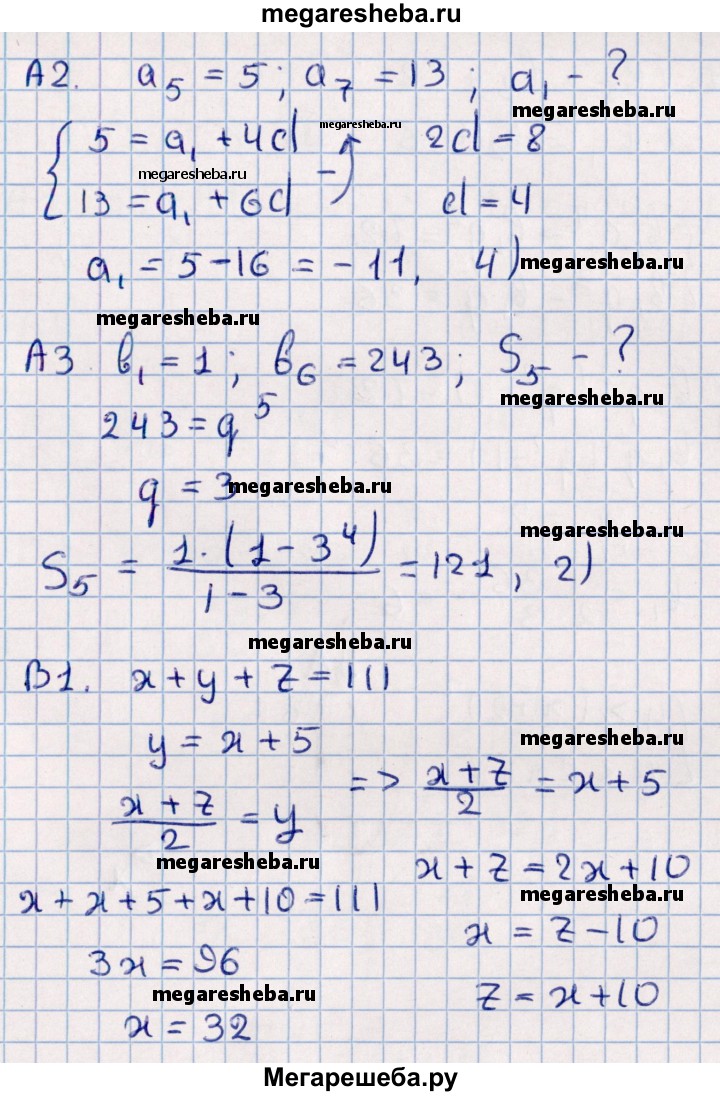 megaresheba.ru
А2. a₅ = 5; a₇ = 13; a₁ - ?
megaresheba.ru
{ 5 = a₁ + 4d
megaresheba.ru
2d = 8
megaresheba.ru
13 = a₁ + 6d
-
d = 4
a₁ = 5 - 16 = -11, 4)
megaresheba.ru
megaresheba.ru
А3 b₁ = 1; b₆ = 243; S₅ - ?
megaresheba.ru
243 = q⁵
q = 3
megaresheba.ru
megaresheba.ru
S₅ = (1·(1 - 3⁴))/(1 - 3) = 121, 2)
megaresheba.ru
В1. x + y + z = 111
y = x + 5
megaresheba.ru
(x + z)/2 = y => (x + z)/2 = x + 5
megaresheba.ru
x + z = 2x + 10
megaresheba.ru
x + x + 5 + x + 10 = 111
x = z - 10
3x = 96
megaresheba.ru
z = x + 10
x = 32
Мегарешеба.ру